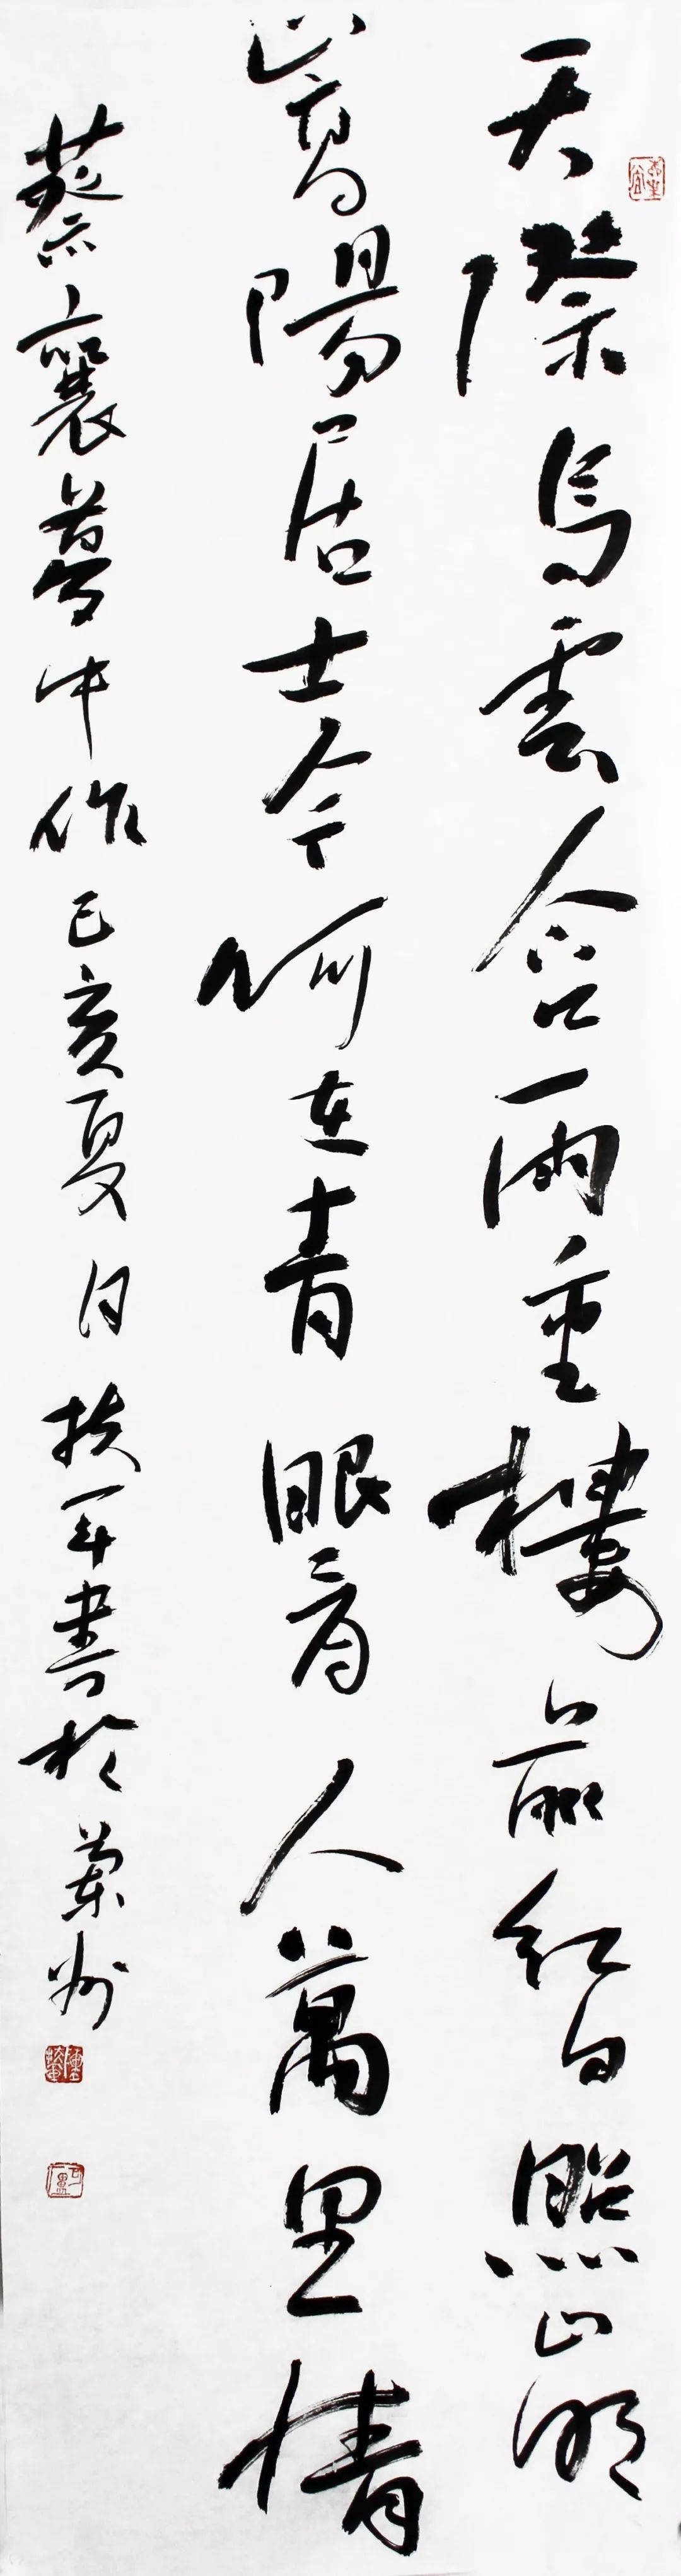 天際烏雲含雨重樓前紅日照山明
嵩陽居士今何在青眼看人萬里情
蔡襄夢中作己亥夏日扶軍書於蘭州